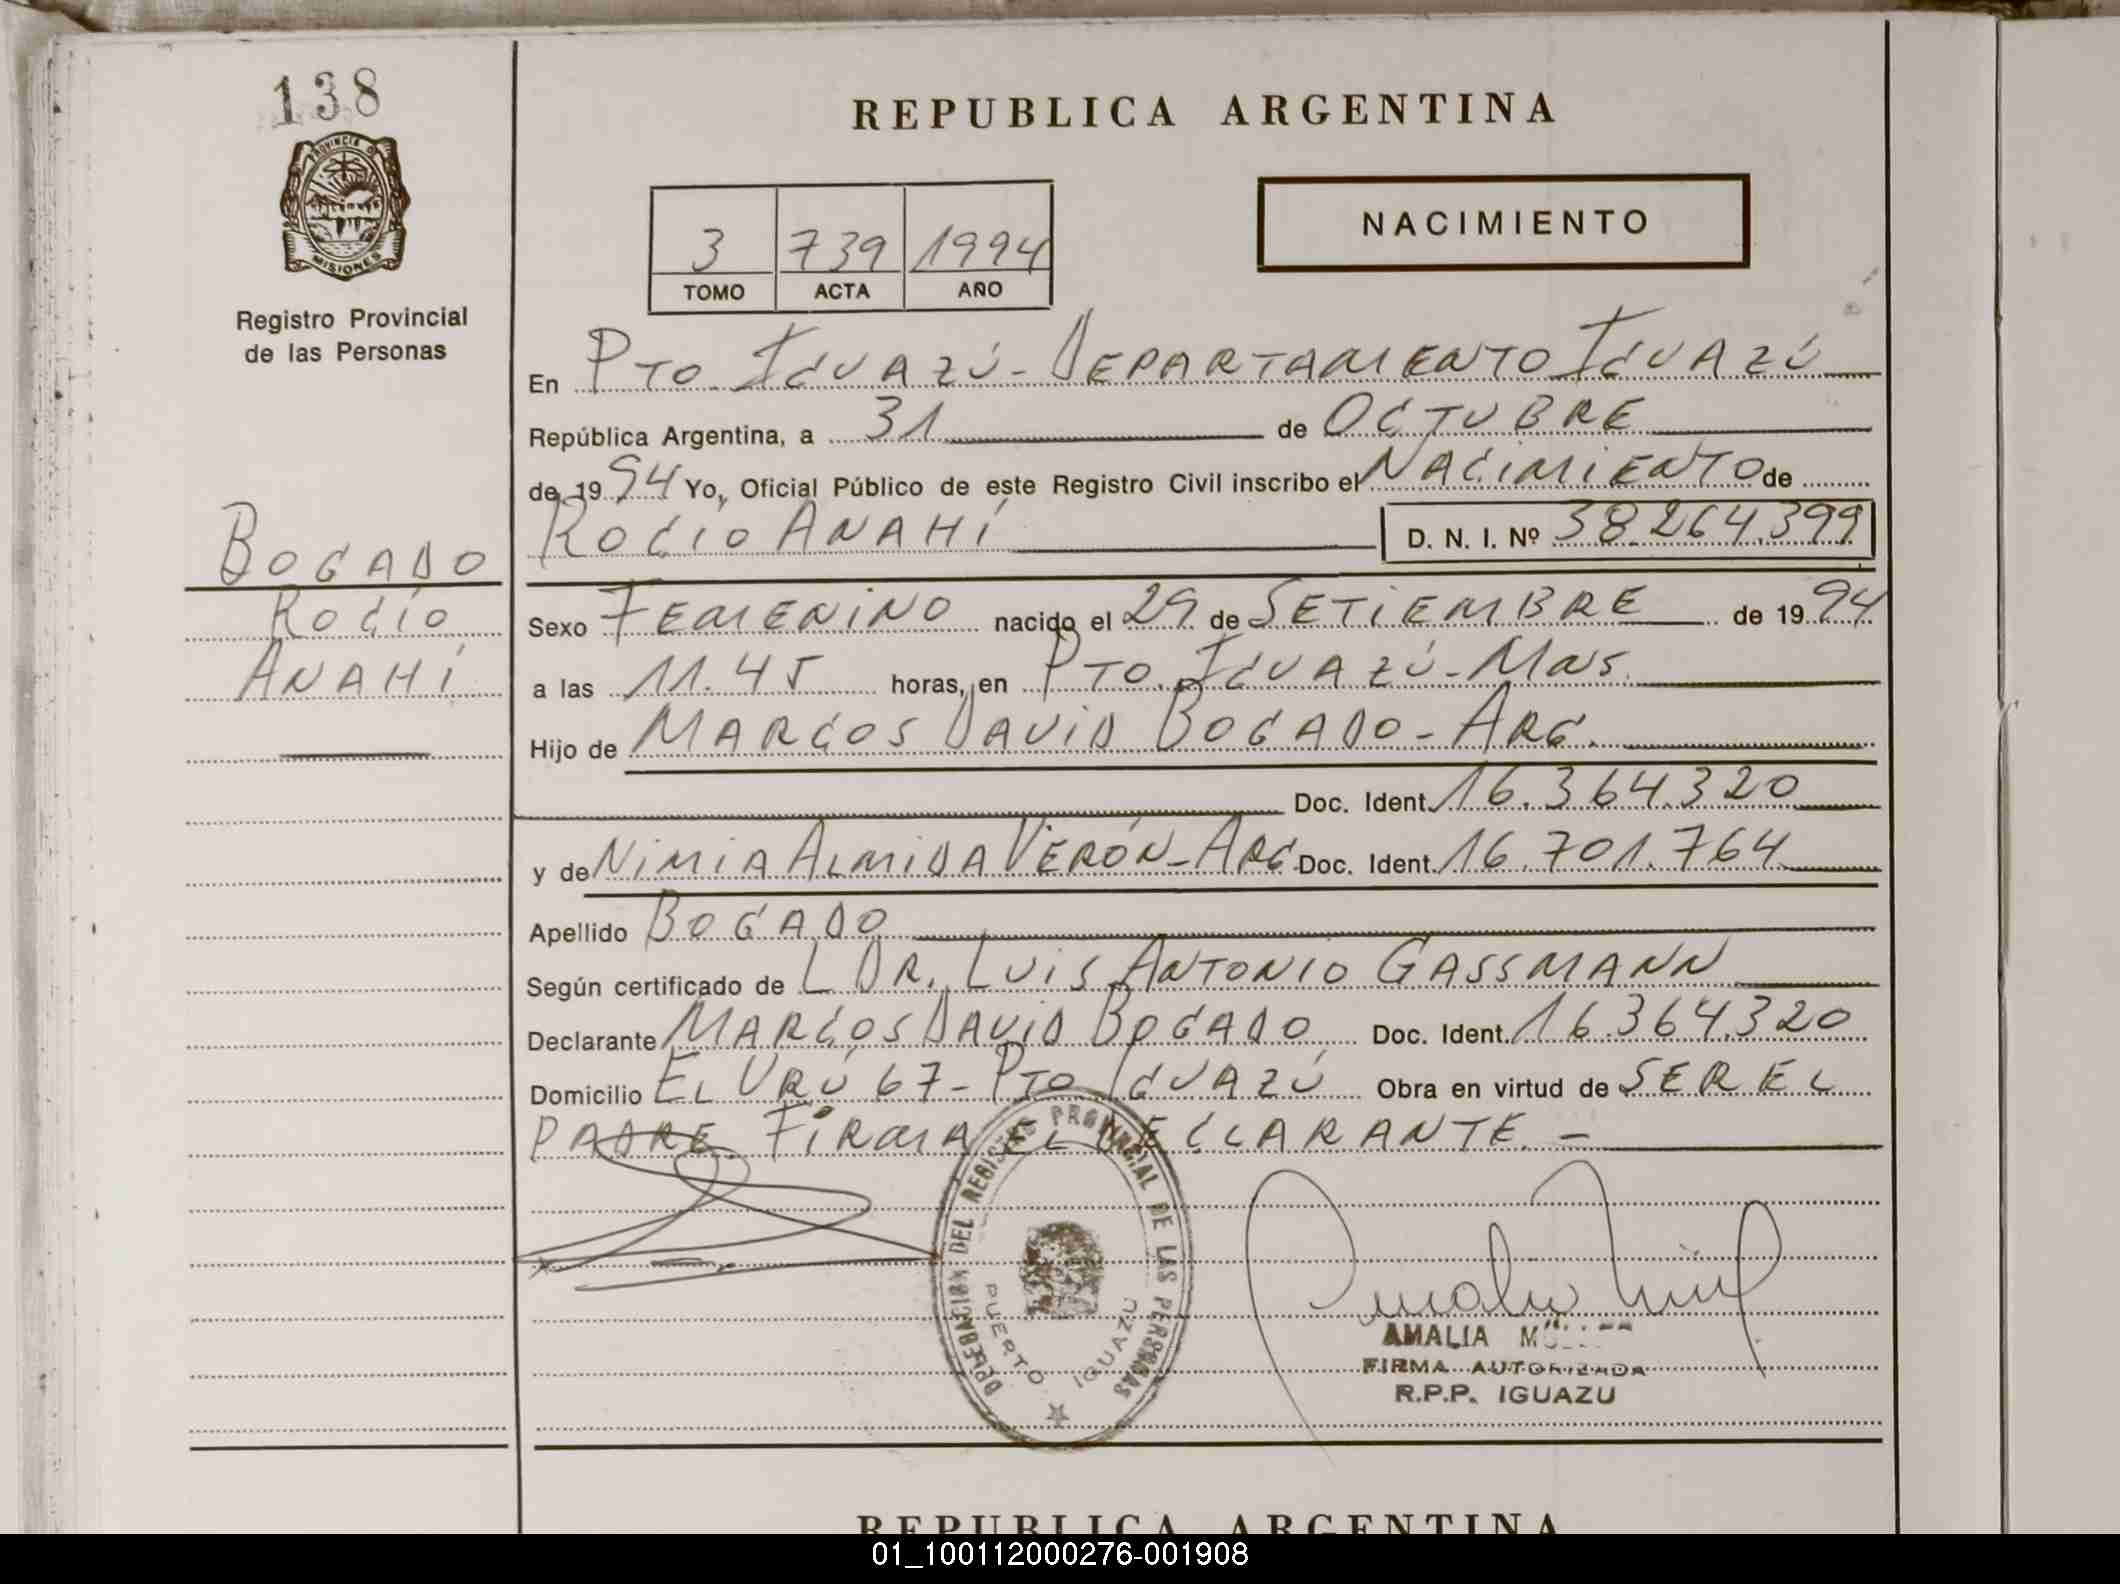 138
PROVINCIA DE
MISIONES
Registro Provincial
de las Personas
BOGADO
ROCÍO
ANAHÍ
REPUBLICA ARGENTINA
3 739 1994
TOMO ACTA AÑO
NACIMIENTO
En PTO. IGUAZÚ - DEPARTAMENTO IGUAZÚ
República Argentina, a 31 de OCTUBRE
de 1994 Yo, Oficial Público de este Registro Civil inscribo el NACIMIENTO de
ROCIO ANAHÍ D. N. I. Nº 38.264.399
Sexo FEMENINO nacido el 29 de SETIEMBRE de 1994
a las 11.45 horas, en PTO. IGUAZÚ - MNS.
Hijo de MARCOS DAVID BOGADO - ARG.
Doc. Ident. 16.364.320
y de NIMIA ALMIDA VERÓN - ARG. Doc. Ident. 16.701.764
Apellido BOGADO
Según certificado de L DR. LUIS ANTONIO GASSMANN
Declarante MARCOS DAVID BOGADO Doc. Ident. 16.364.320
Domicilio EL URÚ 67 - PTO IGUAZÚ Obra en virtud de SER EL
PADRE FIRMA EL DECLARANTE. -
DELEGACIÓN DEL REGISTRO PROVINCIAL DE LAS PERSONAS
PUERTO IGUAZU
AMALIA
FIRMA AUTORIZADA
R.P.P. IGUAZU
REPUBLICA ARGENTINA
01_100112000276-001908